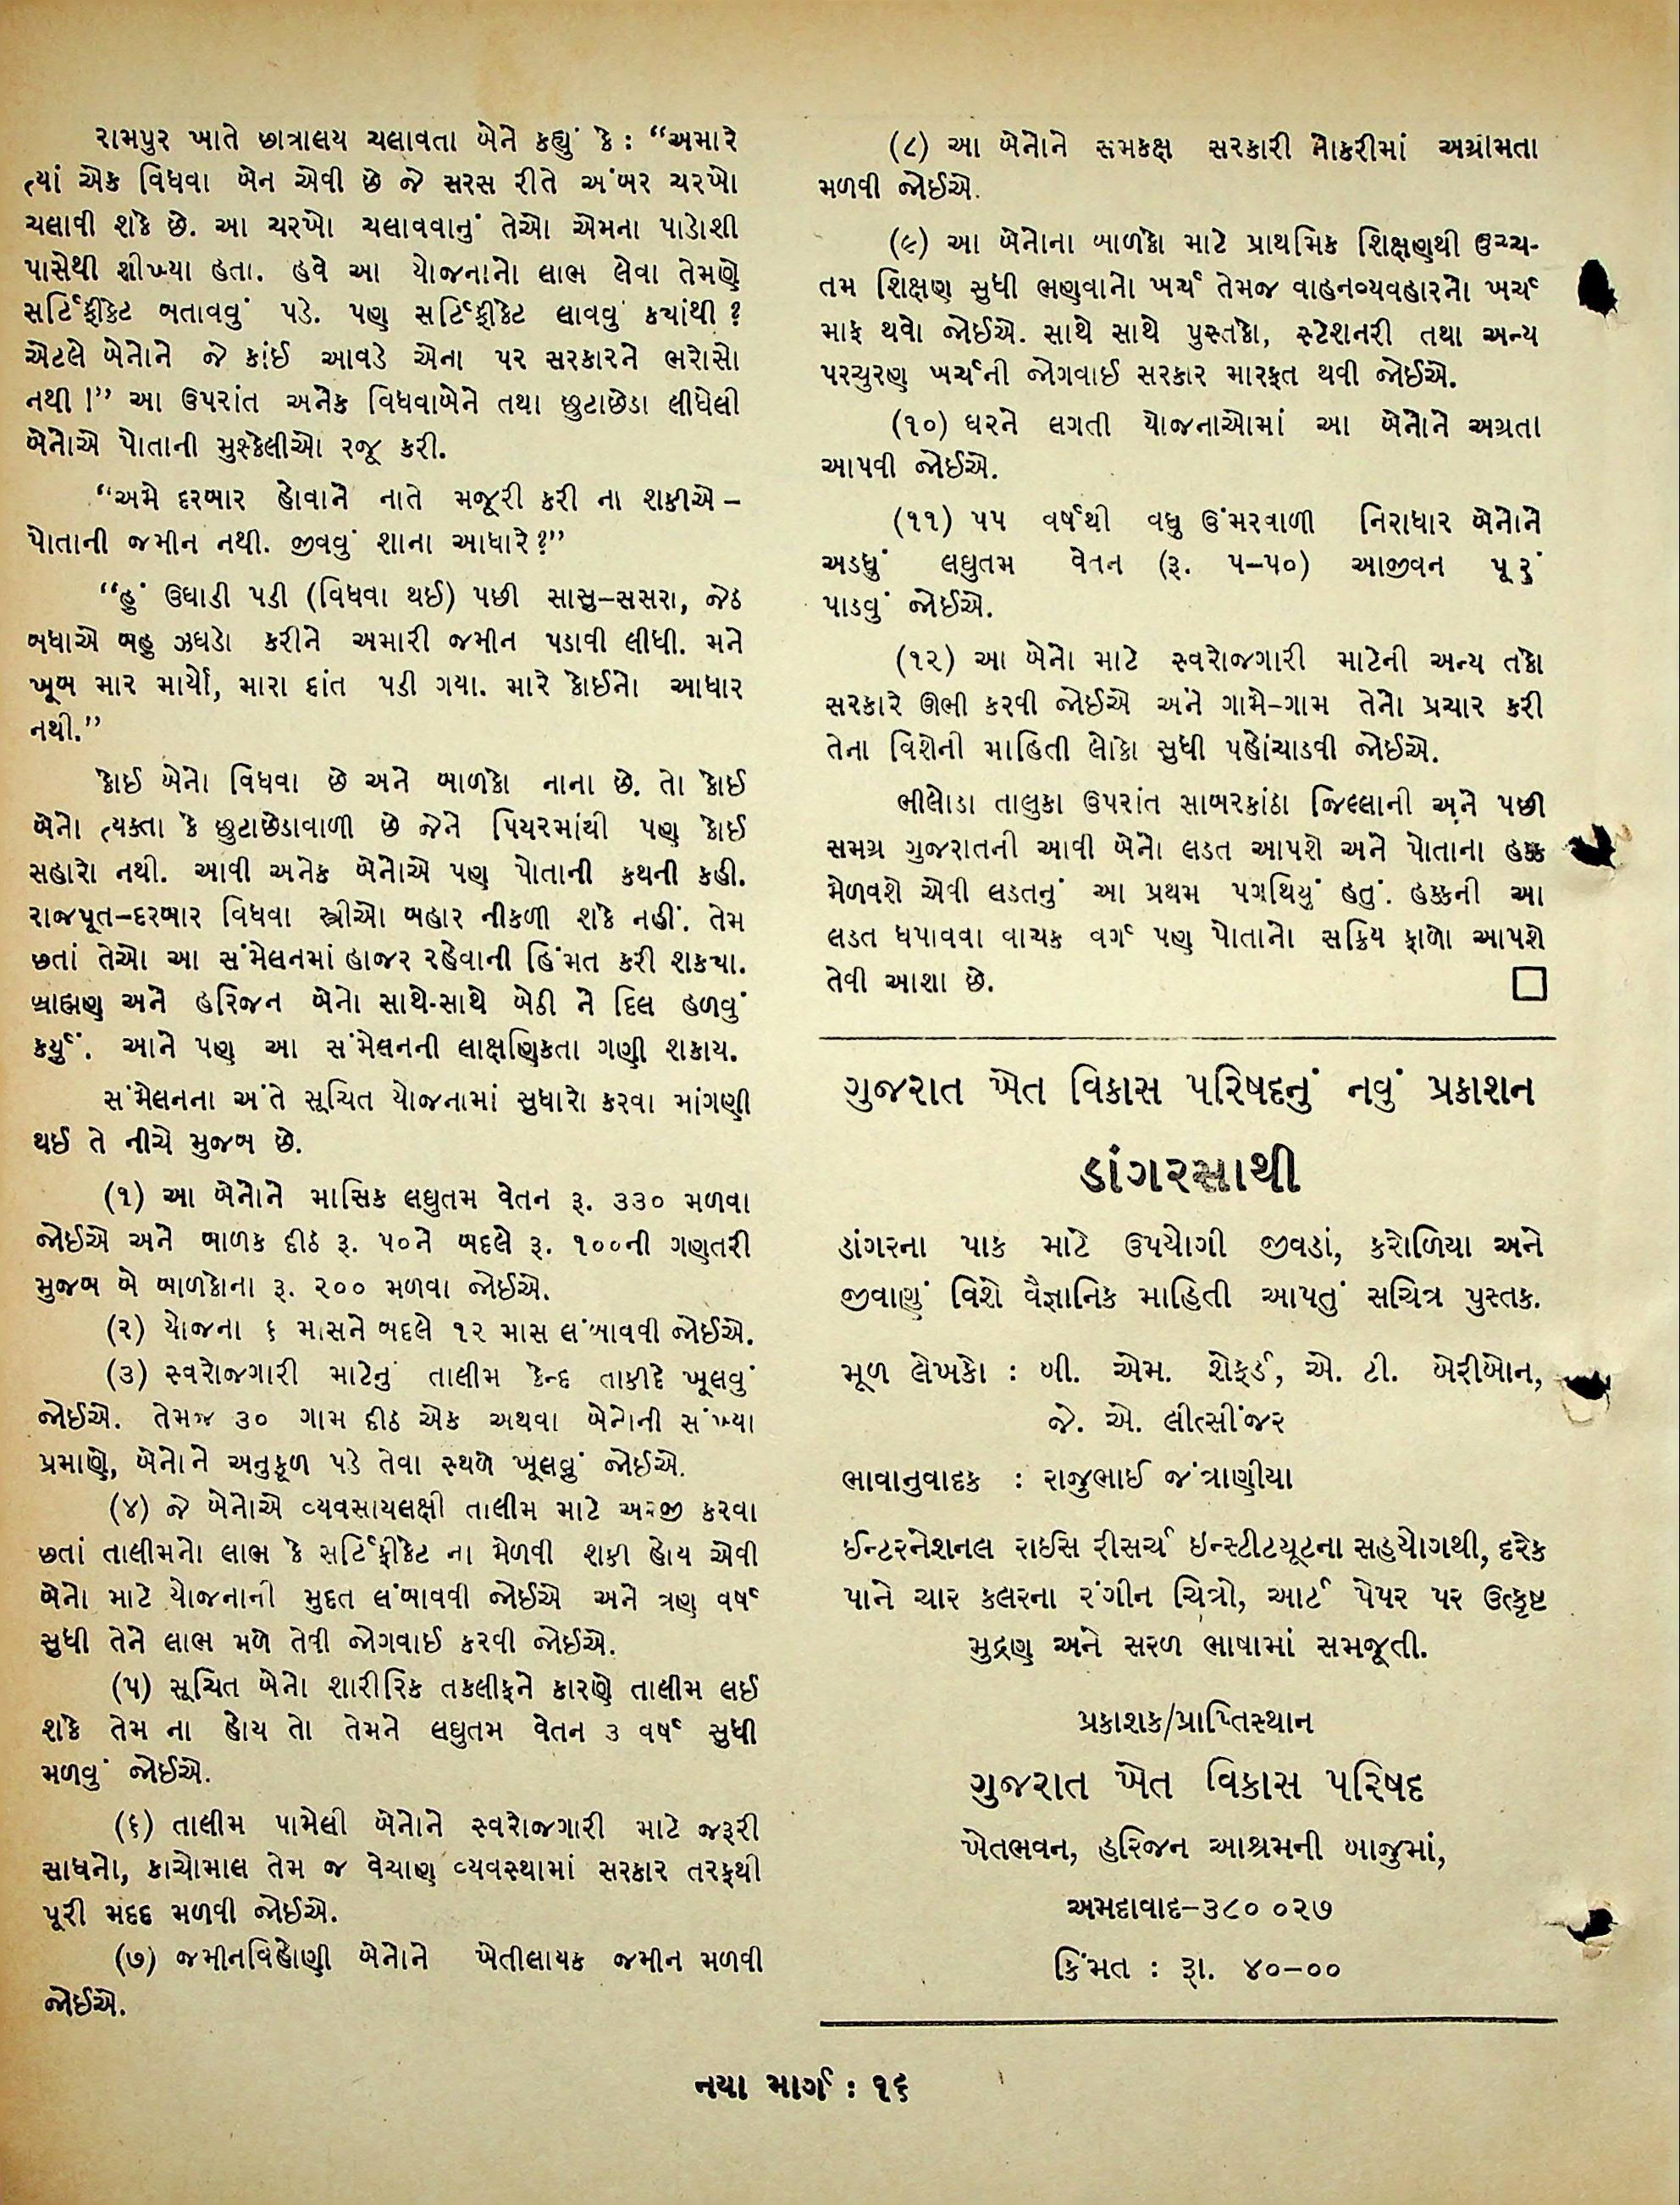 રામપુર ખાતે છાત્રાલય ચલાવતા બેને કહ્યું કે : “અમારે
ત્યાં એક વિધવા બેન એવી છે જે સરસ રીતે અંબર ચરખો
ચલાવી શકે છે. આ ચરખો ચલાવવાનું તેઓ એમના પાડોશી
પાસેથી શીખ્યા હતા. હવે આ યોજનાનો લાભ લેવા તેમણે
સર્ટિફીકેટ બતાવવું પડે. પણ સર્ટિફીકેટ લાવવું ક્યાંથી ?
એટલે બેનોને જે કાંઈ આવડે એના પર સરકારને ભરોસો
નથી !” આ ઉપરાંત અનેક વિધવાબેને તથા છુટાછેડા લીધેલી
બેનોએ પોતાની મુશ્કેલીઓ રજૂ કરી.
“અમે દરબાર હોવાને નાતે મજૂરી કરી ના શકીએ –
પોતાની જમીન નથી. જીવવું શાના આધારે ?”
“હું ઉઘાડી પડી (વિધવા થઈ) પછી સાસુ–સસરા, જેઠ
બધાએ બહુ ઝઘડો કરીને અમારી જમીન પડાવી લીધી. મને
ખૂબ માર માર્યો, મારા દાંત પડી ગયા. મારે કોઈનો આધાર
નથી.”
કોઈ બેનો વિધવા છે અને બાળકો નાના છે. તો કોઈ
બેનો ત્યક્તા કે છુટાછેડાવાળી છે જેને પિયરમાંથી પણ કોઈ
સહારો નથી. આવી અનેક બેનોએ પણ પોતાની કથની કહી.
રાજપૂત–દરબાર વિધવા સ્ત્રીઓ બહાર નીકળી શકે નહીં. તેમ
છતાં તેઓ આ સંમેલનમાં હાજર રહેવાની હિંમત કરી શક્યા.
બ્રાહ્મણ અને હરિજન બેનો સાથે-સાથે બેઠી ને દિલ હળવું
કર્યું. આને પણ આ સંમેલનની લાક્ષણિકતા ગણી શકાય.
સંમેલનના અંતે સૂચિત યોજનામાં સુધારો કરવા માંગણી
થઈ તે નીચે મુજબ છે.
(૧) આ બેનોને માસિક લઘુતમ વેતન રૂ. ૩૩૦ મળવા
જોઈએ અને બાળક દીઠ રૂ. ૫૦ને બદલે રૂ. ૧૦૦ની ગણતરી
મુજબ બે બાળકોના રૂ. ૨૦૦ મળવા જોઈએ.
(૨) યોજના ૬ માસને બદલે ૧૨ માસ લંબાવવી જોઈએ.
(૩) સ્વરોજગારી માટેનું તાલીમ કેન્દ્ર તાકીદે ખૂલવું
જોઈએ. તેમજ ૩૦ ગામ દીઠ એક અથવા બેનોની સંખ્યા
પ્રમાણે, બેનોને અનુકૂળ પડે તેવા સ્થળે ખૂલવું જોઈએ.
(૪) જે બેનોએ વ્યવસાયલક્ષી તાલીમ માટે અરજી કરવા
છતાં તાલીમનો લાભ કે સર્ટિફીકેટ ના મેળવી શકી હોય એવી
બેનો માટે યોજનાની મુદત લંબાવવી જોઈએ અને ત્રણ વર્ષ
સુધી તેને લાભ મળે તેવી જોગવાઈ કરવી જોઈએ.
(૫) સૂચિત બેનો શારીરિક તકલીફને કારણે તાલીમ લઈ
શકે તેમ ના હોય તો તેમને લઘુતમ વેતન ૩ વર્ષ સુધી
મળવું જોઈએ.
(૬) તાલીમ પામેલી બેનોને સ્વરોજગારી માટે જરૂરી
સાધનો, કાચોમાલ તેમ જ વેચાણ વ્યવસ્થામાં સરકાર તરફથી
પૂરી મદદ મળવી જોઈએ.
(૭) જમીનવિહોણી બેનોને ખેતીલાયક જમીન મળવી
જોઈએ.
(૮) આ બેનોને સમકક્ષ સરકારી નોકરીમાં અગ્રીમતા
મળવી જોઈએ.
(૯) આ બેનોના બાળકો માટે પ્રાથમિક શિક્ષણથી ઉચ્ચ-
તમ શિક્ષણ સુધી ભણવાનો ખર્ચ તેમજ વાહનવ્યવહારનો ખર્ચ
માફ થવો જોઈએ. સાથે સાથે પુસ્તકો, સ્ટેશનરી તથા અન્ય
પરચુરણ ખર્ચની જોગવાઈ સરકાર મારફત થવી જોઈએ.
(૧૦) ઘરને લગતી યોજનાઓમાં આ બેનોને અગ્રતા
આપવી જોઈએ.
(૧૧) ૫૫ વર્ષથી વધુ ઉંમરવાળી નિરાધાર બેનોને
અડધું લઘુતમ વેતન (રૂ. ૫–૫૦) આજીવન પૂરું
પાડવું જોઈએ.
(૧૨) આ બેનો માટે સ્વરોજગારી માટેની અન્ય તકો
સરકારે ઊભી કરવી જોઈએ અને ગામે–ગામ તેનો પ્રચાર કરી
તેના વિશેની માહિતી લોકો સુધી પહોંચાડવી જોઈએ.
ભીલોડા તાલુકા ઉપરાંત સાબરકાંઠા જિલ્લાની અને પછી
સમગ્ર ગુજરાતની આવી બેનો લડત આપશે અને પોતાના હક્ક
મેળવશે એવી લડતનું આ પ્રથમ પગથિયું હતું. હક્કની આ
લડત ધપાવવા વાચક વર્ગ પણ પોતાનો સક્રિય ફાળો આપશે
તેવી આશા છે.
ગુજરાત ખેત વિકાસ પરિષદનું નવું પ્રકાશન
ડાંગરસાથી
ડાંગરના પાક માટે ઉપયોગી જીવડાં, કરોળિયા અને
જીવાણું વિશે વૈજ્ઞાનિક માહિતી આપતું સચિત્ર પુસ્તક.
મૂળ લેખકો : બી. એમ. શેફર્ડ, એ. ટી. બેરીબોન,
જે. એ. લીત્સીંજર
ભાવાનુવાદક : રાજુભાઈ જંત્રાણીયા
ઈન્ટરનેશનલ રાઈસ રીસર્ચ ઇન્સ્ટીટયૂટના સહયોગથી, દરેક
પાને ચાર કલરના રંગીન ચિત્રો, આર્ટ પેપર પર ઉત્કૃષ્ટ
મુદ્રણ અને સરળ ભાષામાં સમજૂતી.
પ્રકાશક/પ્રાપ્તિસ્થાન
ગુજરાત ખેત વિકાસ પરિષદ
ખેતભવન, હરિજન આશ્રમની બાજુમાં,
અમદાવાદ–૩૮૦ ૦૨૭
કિંમત : રૂા. ૪૦–૦૦
નયા માર્ગ : ૧૬